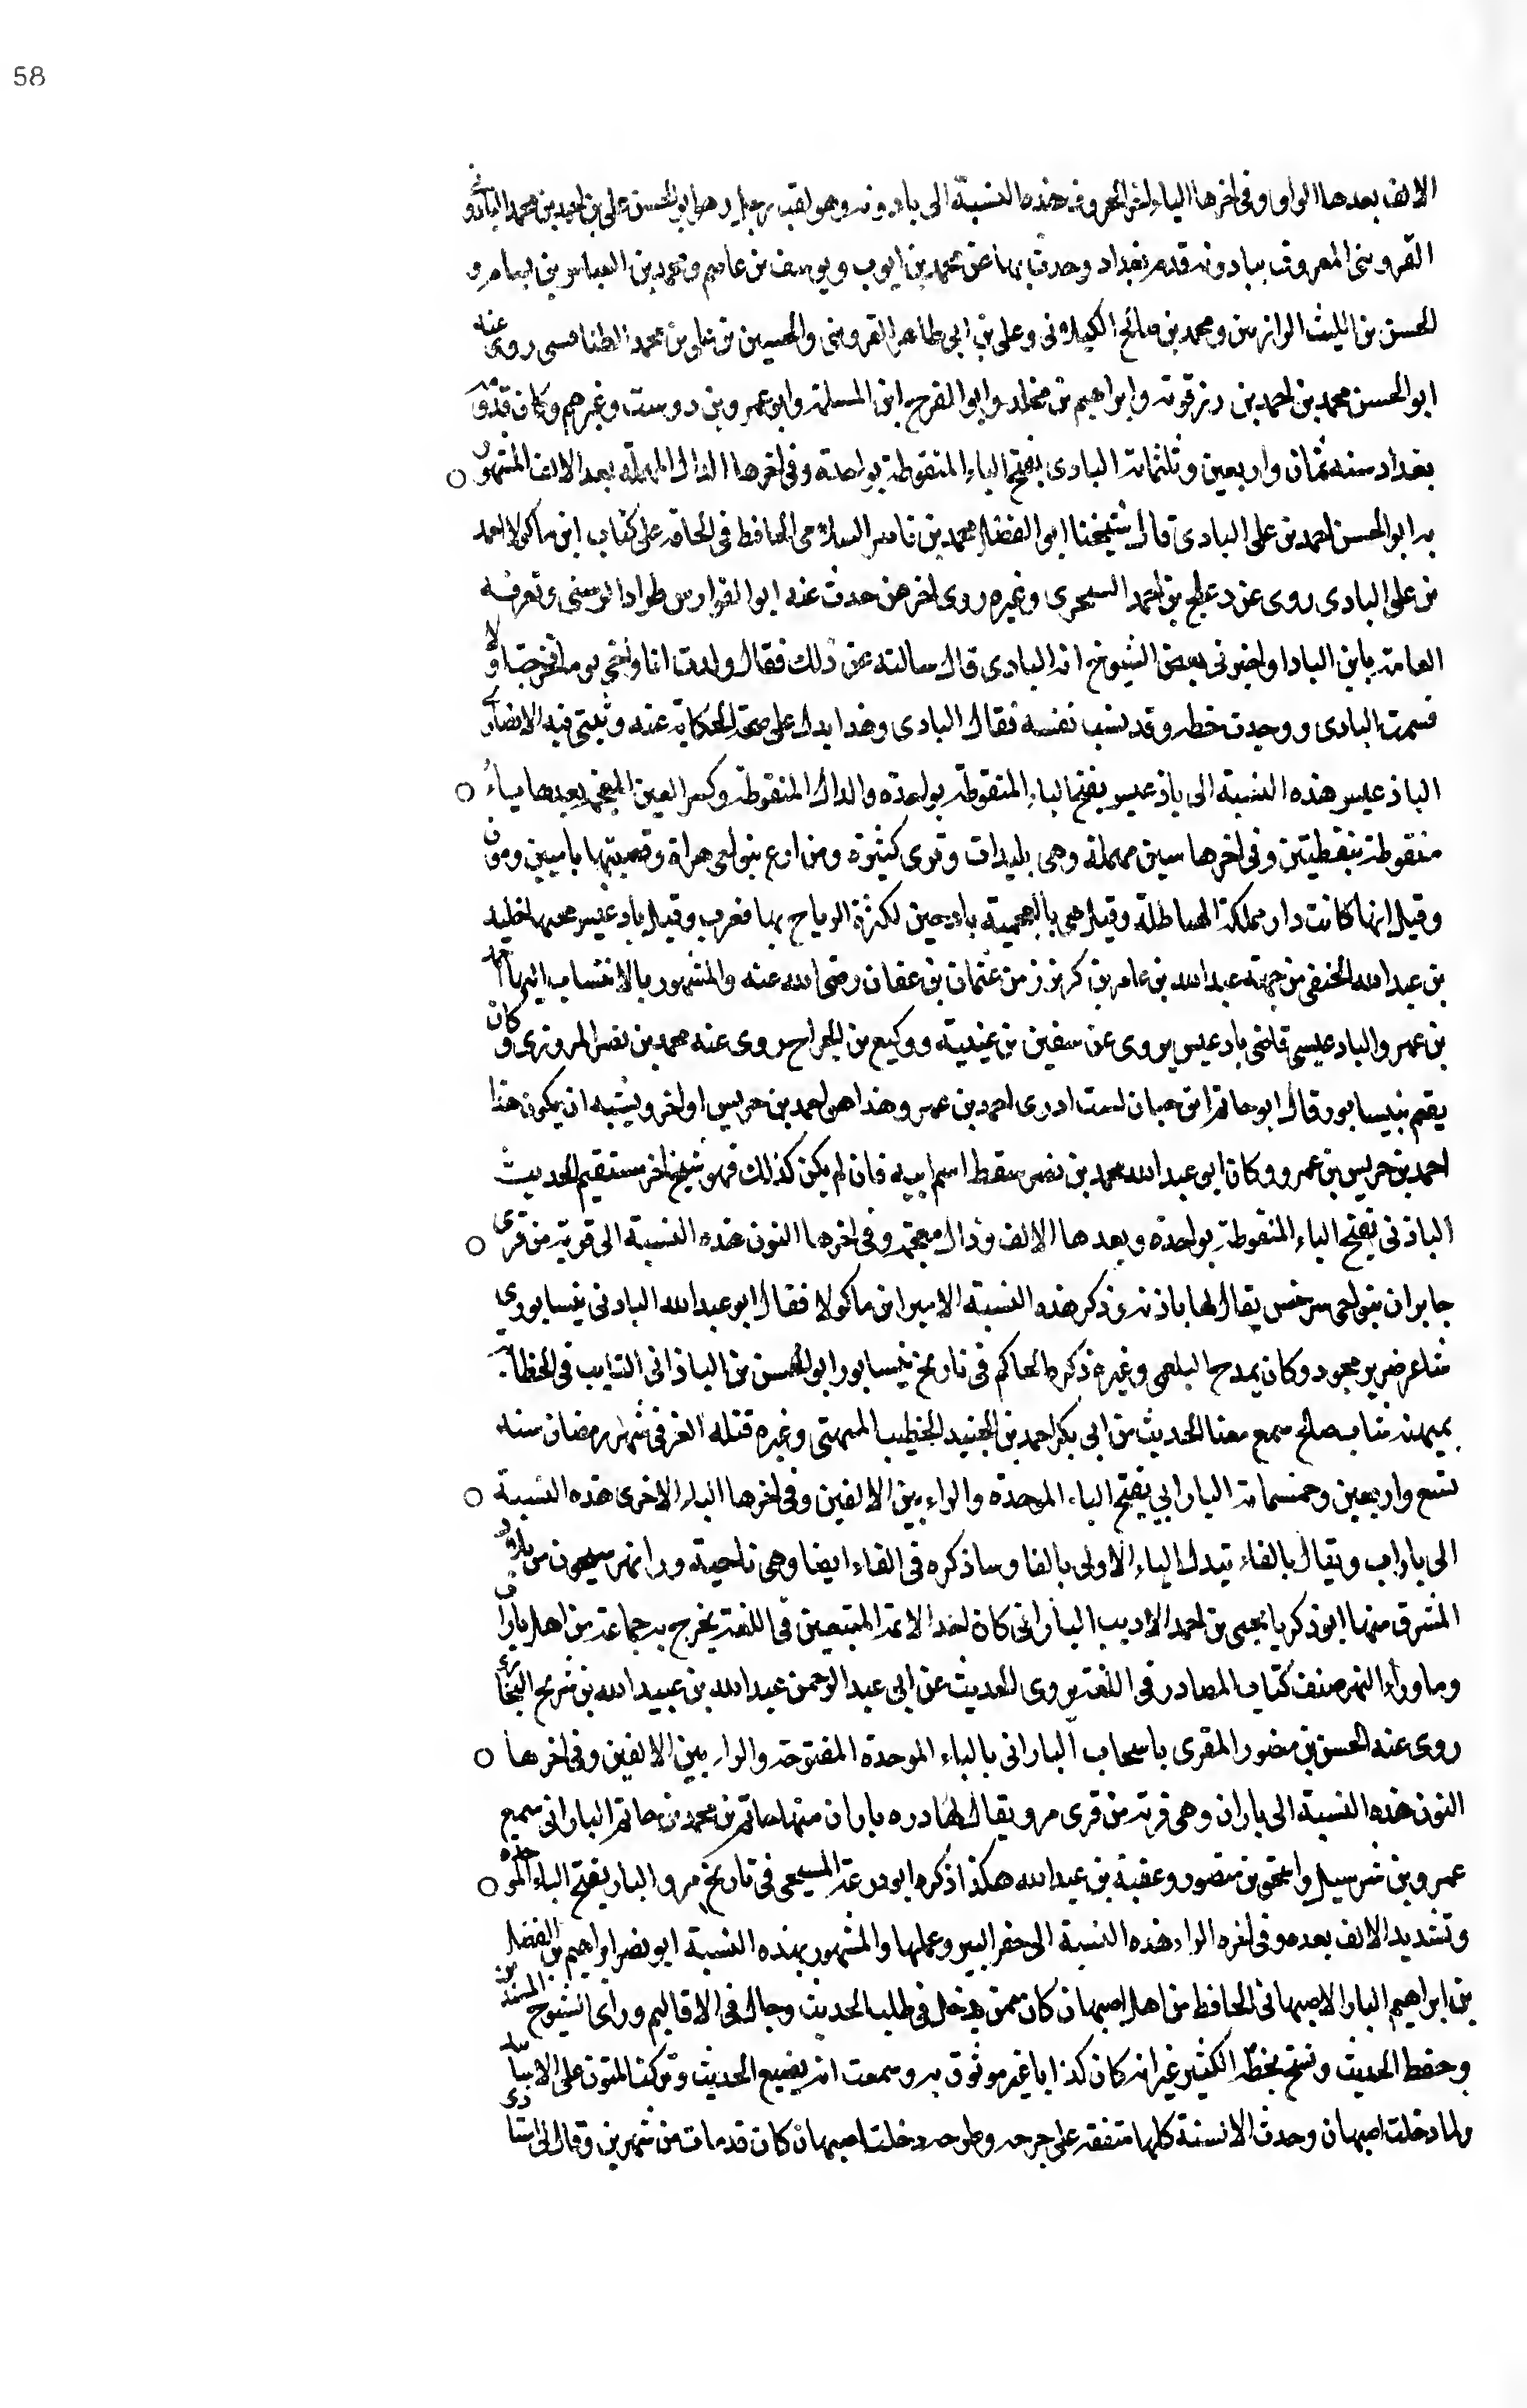 58
الالف بعدها الواو وفي اخرها الياء اخر الحروف هذه النسبة الى بادويه وهو لقب رجل وهو ابو الحسن علي بن احمد بن محمد البادوي
القزويني المعروف ببادويه قدم بغداد وحدث بها عن محمد بن ايوب ويوسف بن عاصم ومحمد بن العباس بن بسام و
الحسن بن الليث الرازيين ومحمد بن صالح الكيلاني وعلي بن ابي طاهر القزويني والحسين بن علي بن محمد الطنافسي روى عنه
ابو الحسن محمد بن احمد بن رزقويه وابراهيم بن مخلد وابو الفرج ابن المسلمة وابو عمرو بن دوست وغيرهم وكان قدومه
بغداد سنه ثمان واربعين وثلثمائة البادي بفتح الباء المنقوطة بواحدة وفي اخرها الدال المهملة بعد الالف المشهور
به ابو الحسن احمد بن علي البادي قال شيخنا ابو الفضل محمد بن ناصر السلامي الحافظ في الحاقه على كتاب ابن ماكولا احمد
بن علي البادي روى عن دعلج بن احمد السجزي وغيره روى اخر من حدث عنه ابو الفوارس طراد الزينبي وتعرفه
العامة بابن البادا واخبرني بعض الشيوخ انه البادي قال سالته عن ذلك فقال ولدت انا واخي توما فخرجت اولا
فسميت البادي ووجدت خطه وقد نسب نفسه فقال البادي وهذا يدل على صحة الحكاية عنه وثبتني فيه الانصاري
الباذغيسي هذه النسبة الى باذغيس بفتح الباء المنقوطة بواحدة والذال المنقوطة وكسر الغين المعجمة بعدها ياء
منقوطة بنقطتين وفي اخرها سين مهملة وهي بليدات وقرى كثيرة ومزارع بنواحي هراة وقصبتها بامئين ومون
وقيل انها كانت دار مملكة الهياطلة وقيل هي بالعجمية بادخيز لكثرة الرياح بها فعرب وقيل بادغيس فتحها خليد
بن عبد الله الحنفي من جهة عبد الله بن عامر بن كريز زمن عثمان بن عفان رضي الله عنه والمشهور بالانتساب اليها احمد
بن عمرو البادغيسي قاضي بادغيس يروي عن سفين بن عيينة ووكيع بن الجراح روى عنه محمد بن نصر المروزي وكان
يقيم بنيسابور قال ابو حاتم ابن حبان لست ادري احمد بن عمرو هذا هو احمد بن حريش او اخر ويشبه ان يكون هذا
احمد بن حريش بن عمرو وكان ابو عبد الله محمد بن نصر سقط اسم ابيه فان لم يكن كذلك فهو شيخ اخر مستقيم الحديث
الباذني بفتح الباء المنقوطة بواحدة وبعدها الالف وذال معجمة وفي اخرها النون هذه النسبة الى قرية من قرى
جابران بنواحي سرخس يقال لها باذنه وذكر هذه النسبة الامير ابن ماكولا فقال ابو عبد الله الباذني نيسابوري
شاعر ضرير مجود وكان يمدح البلعمي وغيره ذكره الحاكم في تاريخ نيسابور ابو الحسن بن الباذاني النايب في الخطابة
بميهنه شاب صالح سمع معنا الحديث من ابي بكر احمد بن الجنيد الخطيب الميهني وغيره قتله الغز في شهر رمضان سنه
تسع واربعين وخمسمائة البارابي بفتح الباء الموحدة والراء بين الالفين وفي اخرها الباء الاخرى هذه النسبة
الى باراب ويقال بالفاء تبدل الباء الاولى بالفا وساذكره في الفاء ايضا وهي ناحية وراء نهر سيحون من بلاد
المشرق منها ابو زكريا يحيى بن احمد الاديب البارابي كان احد الائمة المتبعين في اللغة يخرج به جماعة من اهل باراب
وما وراء النهر صنف كتاب المصادر في اللغة يروي الحديث عن ابي عبد الرحمن عبد الله بن عبيد الله بن شريح البخاري
روى عنه الحسن بن منصور المقرى باسبيجاب الباراني بالباء الموحدة المفتوحة والراء بين الالفين وفي اخرها
النون هذه النسبة الى باران وهي قرية من قرى مرو يقال لها دره باران منها حاتم بن محمد بن حاتم الباراني سمع
عمرو بن شرسيل واسحق بن منصور وعقبة بن عبد الله هكذا ذكره ابو زرعة المسيحي في تاريخ مرو البار بفتح الباء الموحدة
وتشديد الالف بعده وفي اخره الراء هذه النسبة الى حفر البير وعملها والمشهور بهذه النسبة ابو نصر ابراهيم بن الفضل
بن ابراهيم البار الاصبهاني الحافظ من اهل اصبهان كان ممن رحل في طلب الحديث وجال في الاقاليم وراى الشيوخ المسندين
وحفظ الحديث ونسخ بخطه الكثير غير انه كان كذابا غير موثوق به وسمعت انه يضيع الحديث وتركت المتون على الاسانيد
ولما دخلت اصبهان وجدت الالسنة كلها متفقة على جرحه وطرحه دخلت اصبهان كان قد مات من شهرين وقال لي استادي